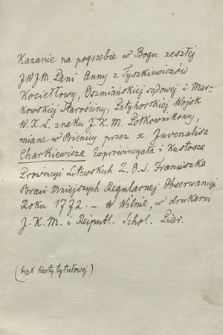 Kazanie na pogrzebie w Bogu zeszłej
JWJM Pani Anny z Tyszkiewiczów
Kociełłowy, Oszmiańskiej sądowej i Mar-
kowskiej Starościny, Petyhorskiej Wojsk
W.X.L. znaku J.K.M. Pułkownikowy,
miane w Bienicy przez x. Juwenalisa
Charkiewicza Exprowincyała i Kustosza
Prowincyi Litewskiej Z.O.S. Franciszka
Braci Mniejszych Regularnej Obserwancyi
Roku 1772. – w Wilnie, w drukarni
J.K.M. i Reipubl. Schol. Piar.
(brak karty tytułowej)